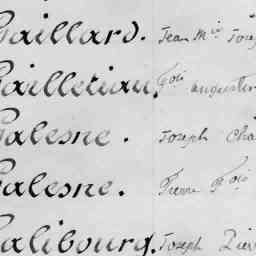 Gaillard. Jean M.ie Jose
Gailletiau. F.ois augustin
Galesne. Joseph Cha
Galesne. Pierre F.ois
Galibourg. Joseph Pier